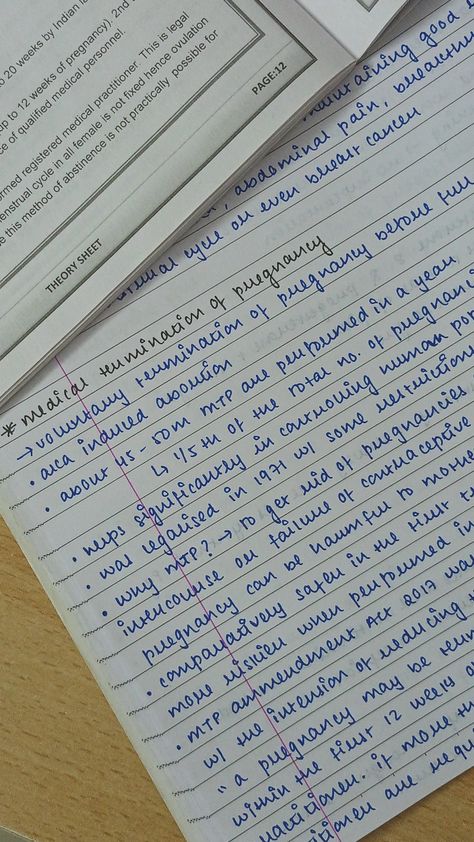 o 20 weeks by Indian
up to 12 weeks of pregnancy). 2nd
ce of qualified medical personnel.
ormed registered medical practitioner. This is legal
enstrual cycle in all female is not fixed hence ovulation
e this method of abstinence is not practically possible for
PAGE:12
THEORY SHEET
maintaining good
, abdominal pain,
cycle or even breast cancer
* medical termination of pregnancy
→ voluntary termination of pregnancy before full
• aka induced abortion
• about 45-50m MTP are performed in a year,
↳ 1/5th of the total no. of pregnanc
• helps significantly in controlling human pop
• was legalised in 1971 w/ some restrictions
• why MTP? → to get rid of pregnancies
intercourse or failure of contraceptive
pregnancy can be harmful to mothe
• comparatively safer in the first t
more riskier when performed i
• MTP ammendment Act 2017 wa
w/ the intension of reducing
" a pregnancy may be te
within the first 12 weeks o
ractitioner. if more th
itioner are requi